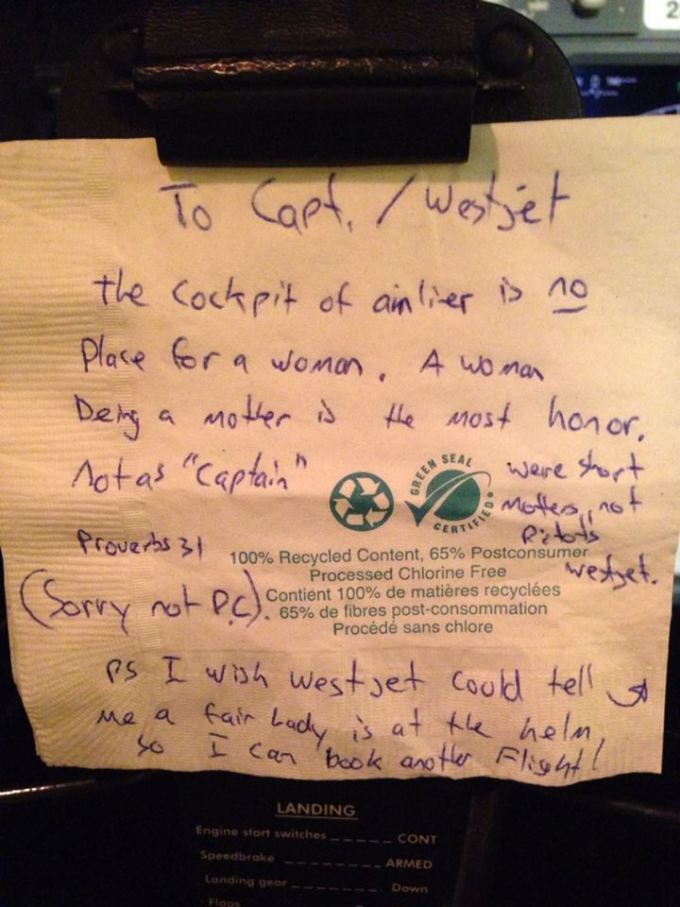 2
To Capt. / Westjet
the Cockpit of airlier is no
Place for a woman. A woman
being a mother is the most honor.
Not as "Captain"
were short
mothers, not
Pilots
westjet.
GREEN SEAL
CERTIFIED
Proverbs 31
100% Recycled Content, 65% Postconsumer
Processed Chlorine Free
(Sorry not P.C).
Contient 100% de matières recyclées
65% de fibres post-consommation
Procédé sans chlore
PS I wish westjet could tell
me a fair Lady is at the helm,
so I can book another Flight!
LANDING
Engine start switches _ _ _ _ _ CONT
Speedbrake _ _ _ _ _ _ _ _ ARMED
Landing gear _ _ _ _ _ _ _ _ Down
Flaps